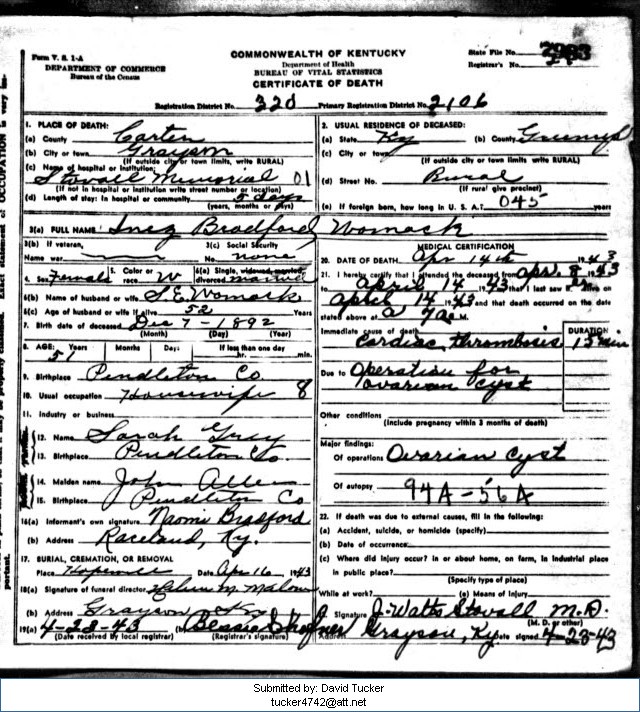 Form V. S. 1-A
DEPARTMENT OF COMMERCE
Bureau of the Census
COMMONWEALTH OF KENTUCKY
Department of Health
BUREAU OF VITAL STATISTICS
CERTIFICATE OF DEATH
State File No.
Registrar's No.
Registration District No. 320 Primary Registration District No. 2106
1. PLACE OF DEATH:
(a) County Carter
(b) City or town Grayson
(If outside city or town limits, write RURAL)
(c) Name of hospital or institution:
Stovall Memorial 01
(If not in hospital or institution write street number or location)
(d) Length of stay: In hospital or community 5 days
(years, months or days)
2. USUAL RESIDENCE OF DECEASED:
(a) State Ky (b) County
(c) City or town
(If outside city or town limits write RURAL)
(d) Street No. Rural
(If rural give precinct)
(e) If foreign born, how long in U. S. A? 045 years
3(a) FULL NAME Inez Bradford Womack
3(b) If veteran,
Name war
3(c) Social Security
No. none
4. Sex Female 5. Color or race W 6(a) Single, widowed, married, divorced married
6(b) Name of husband or wife S. E. Womack
6(c) Age of husband or wife if alive 52 Years
7. Birth date of deceased Dec 7 - 1892
(Month) (Day) (Year)
8. AGE: Years Months Days If less than one day
51 hr. min.
9. Birthplace Pendleton Co
10. Usual occupation Housewife 8
11. Industry or business
12. Name Sarah Gray
13. Birthplace Pendleton Co.
14. Maiden name John Allen
15. Birthplace Pendleton Co
16(a) Informant's own signature Naomi Bradford
(b) Address Raceland, Ky.
17. BURIAL, CREMATION, OR REMOVAL
Place Hopewell Date Apr 16 1943
18(a) Signature of funeral director M. Malone
(b) Address Grayson Ky
19(a) 4-28-43 (b) Bessie
(Date received by local registrar) (Registrar's signature)
MEDICAL CERTIFICATION
20. DATE OF DEATH Apr 14th 1943
21. I hereby certify that I attended the deceased from Apr. 8 1943
to April 14 1943 that I last saw alive on
April 14 1943 and that death occurred on the date
stated above at M.
Immediate cause of death DURATION
Cardiac thrombosis 15 min
Due to Operation for
ovarian cyst
Other conditions
(Include pregnancy within 3 months of death)
Major findings:
Of operations Ovarian Cyst
Of autopsy 94A-56A
22. If death was due to external causes, fill in the following:
(a) Accident, suicide, or homicide (specify)
(b) Date of occurrence
(c) Where did injury occur? In or about home, on farm, in industrial place
in public place?
(Specify type of place)
While at work? (e) Means of injury
Signature J. Watts Stovall M.D.
(M. D. or other)
Address Grayson, Ky Date signed 4-28-43
Submitted by: David Tucker
tucker4742@att.net